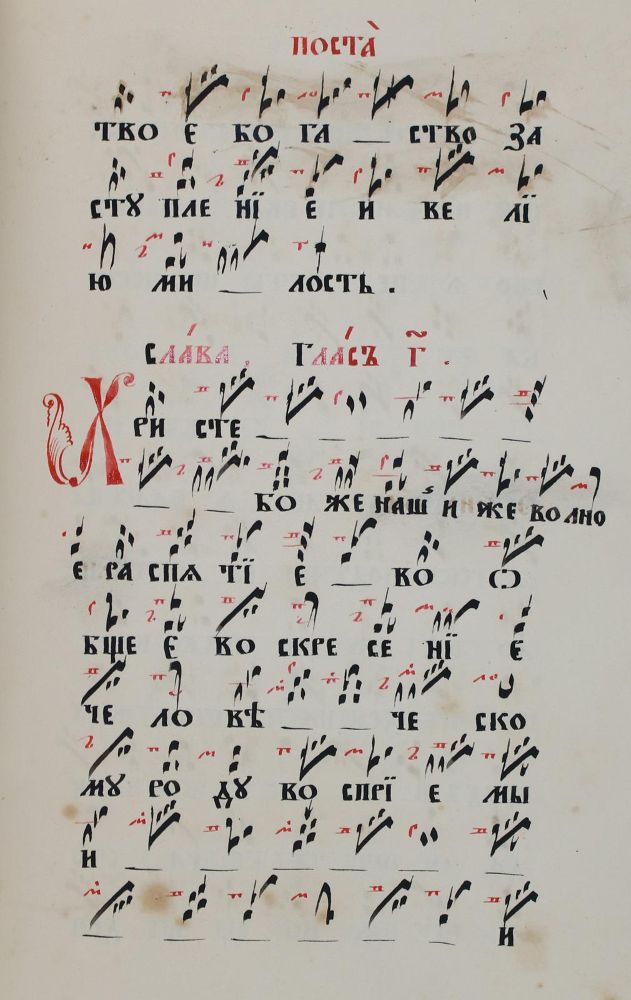 ПОСТА̀
ТВО Є БО ГА СТВО ЗА
СТꙊ ПЛЕ НЇ Е И ВЕ ЛЇ
Ю МИ ЛОСТЬ .
СЛА́ВА . ГЛА́СЪ Г҃ .
ХРИ СТЕ
БО ЖЕ НАШ И ЖЕ ВОЛНО
Е РА СПѦ ТЇ Е ВО Ѡ
БЩЕ Е ВО СКРЕ СЕ НЇ Е
ЧЕ ЛО ВѢ ЧЕ СКО
МУ РО ДУ ВО СПРЇ Е МЫ
И
И